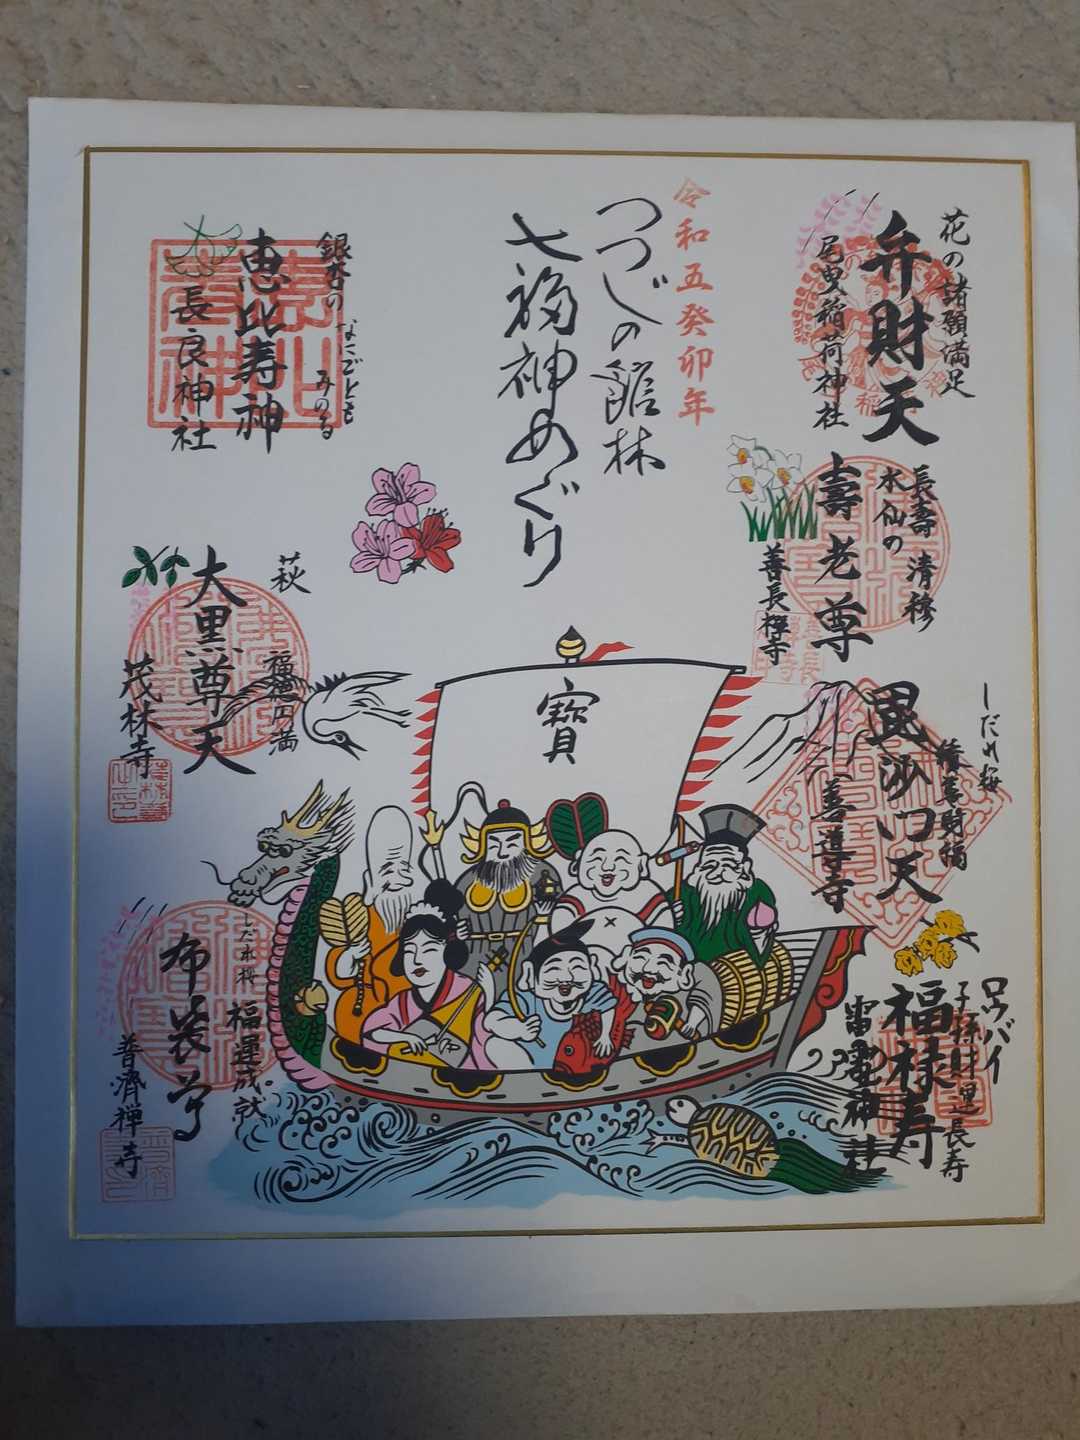 令和五癸卯年
つつじの館林
七福神めぐり
花の諸願満足
弁財天
尾曳稲荷神社
長壽 清福
水仙の
壽老尊
善長禅寺
しだれ桜
積善財福
毘沙門天
善導寺
ロウバイ
子孫財運 長寿
福禄寿
雷電神社
銀杏の
なにごとも
みのる
恵比寿神
長良神社
萩
福徳円満
大黒尊天
茂林寺
しだれ桜
福運成就
布袋尊
普濟禅寺
寶